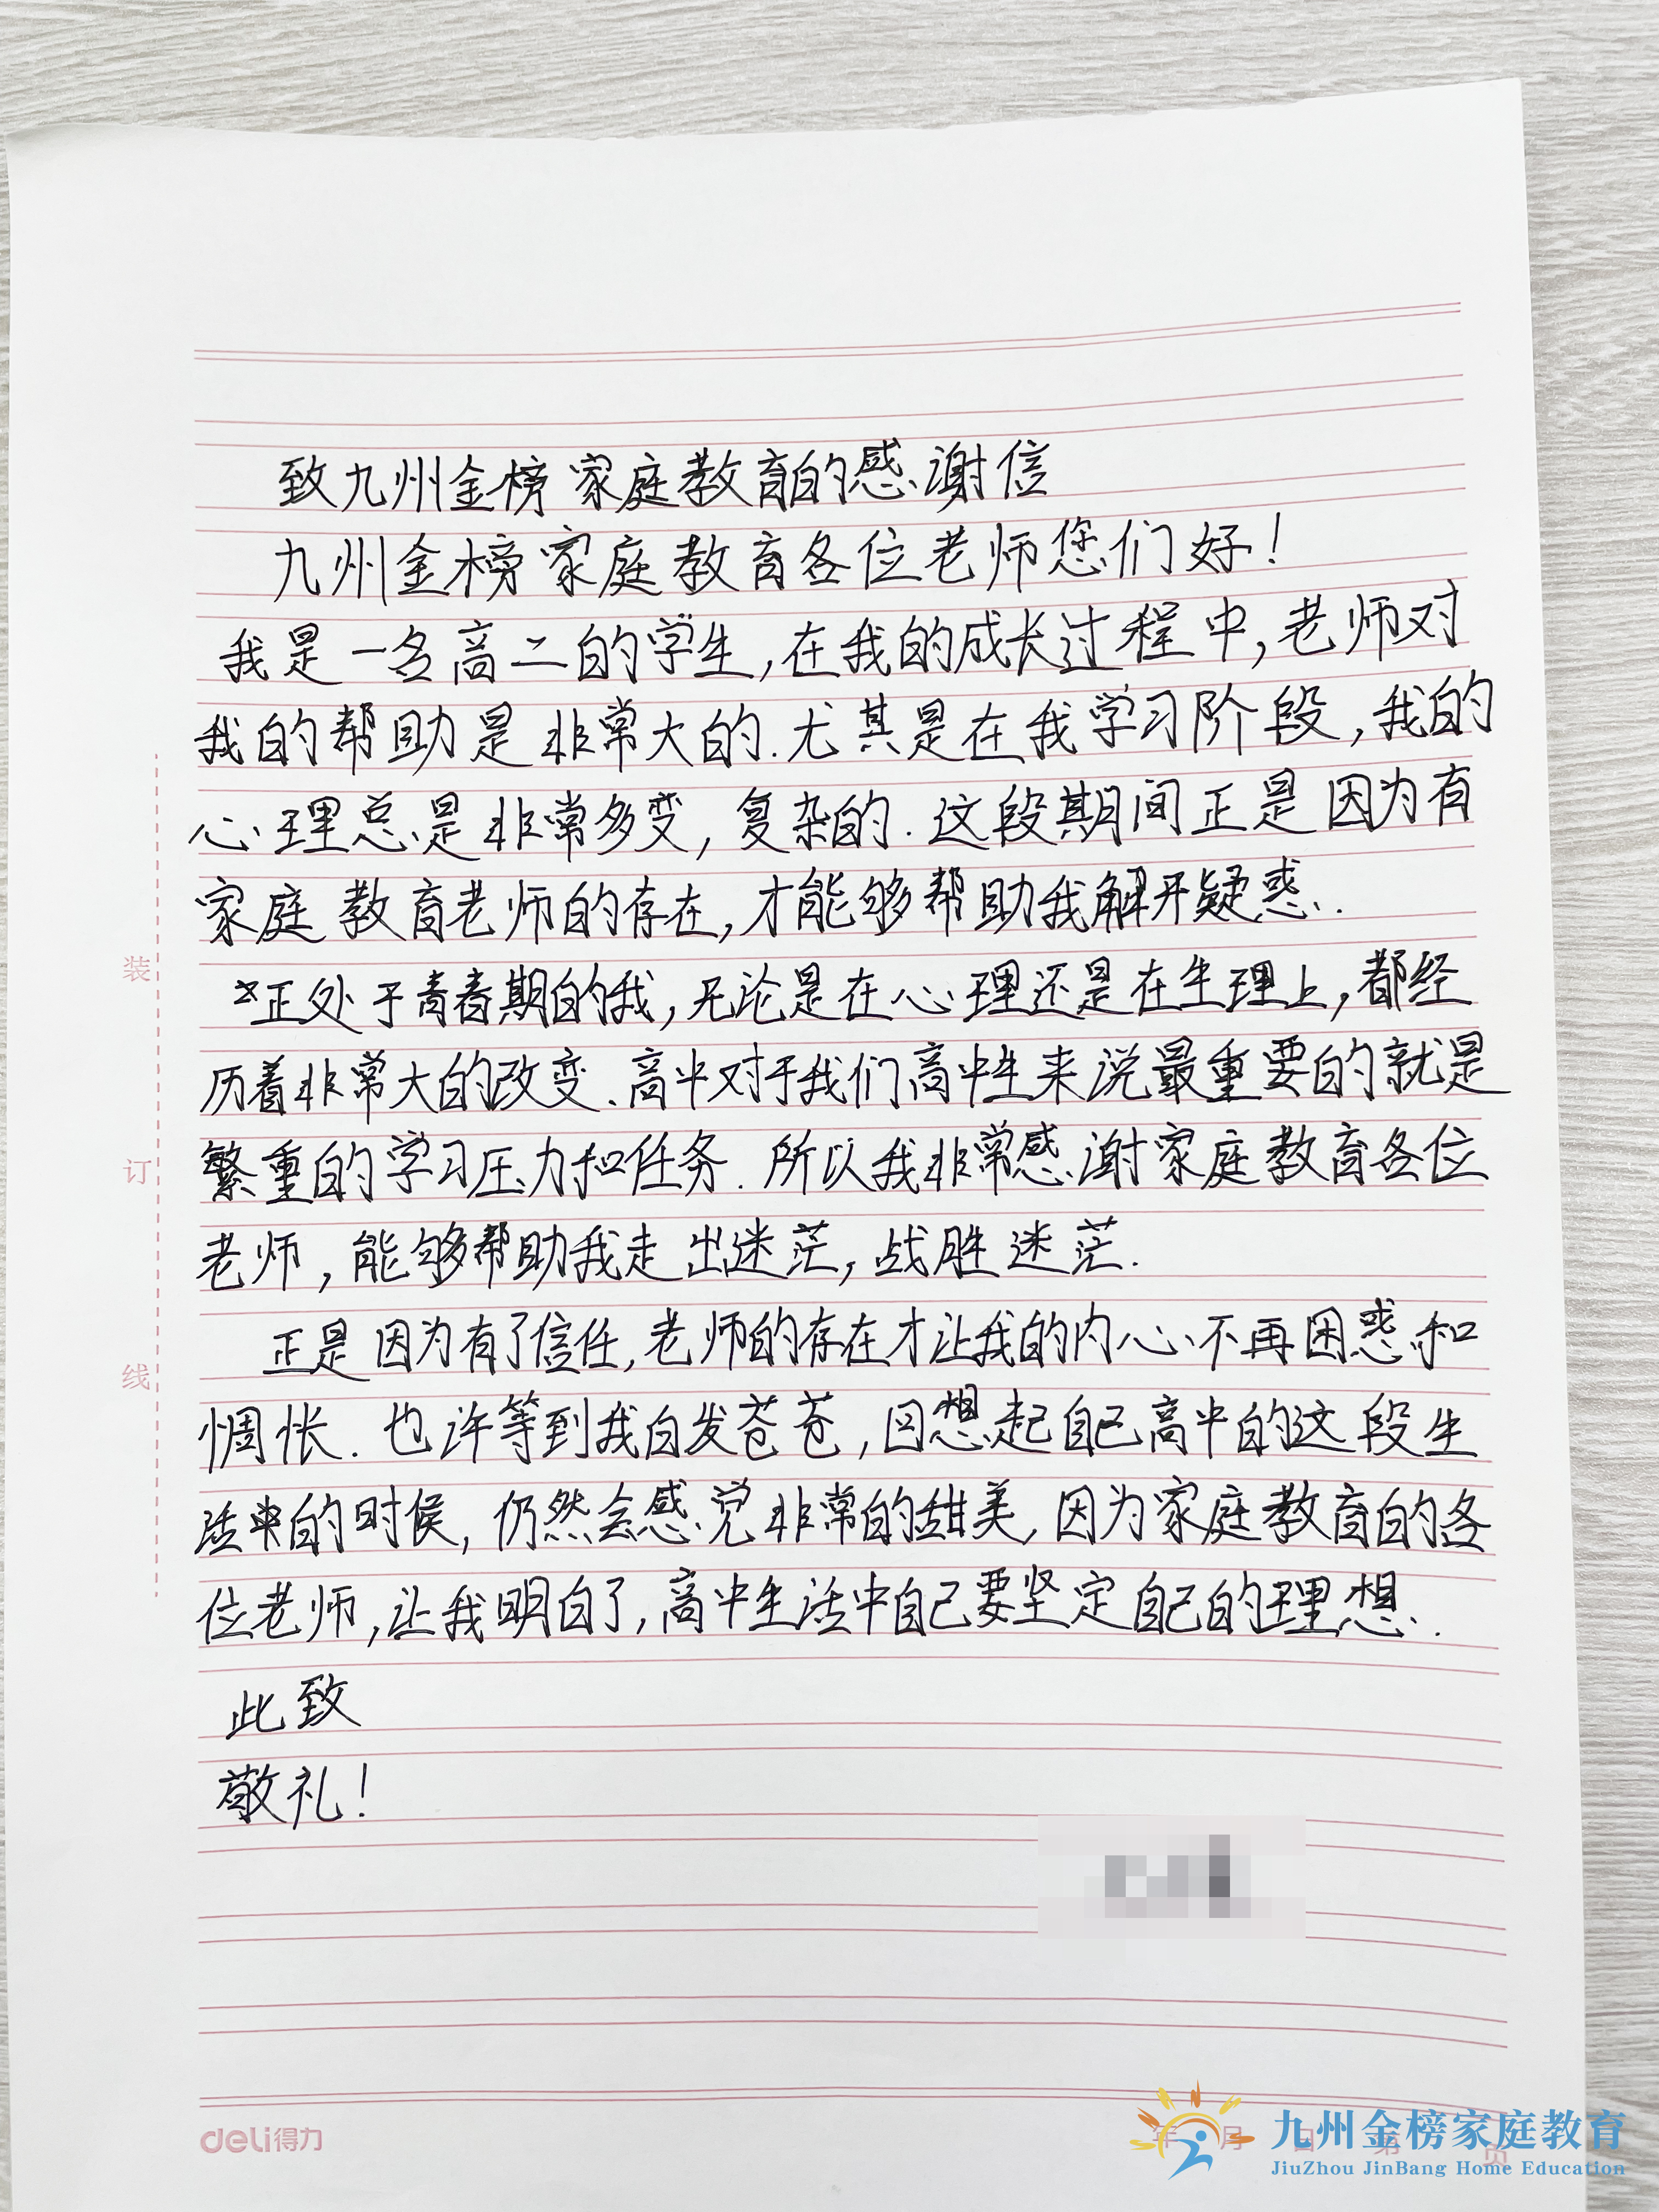 致九州金榜家庭教育的感谢信
九州金榜家庭教育各位老师您们好！
我是一名高二的学生，在我的成长过程中，老师对
我的帮助是非常大的．尤其是在我学习阶段，我的
心理总是非常多变，复杂的．这段期间正是因为有
家庭教育老师的存在，才能够帮助我解开疑惑．
正处于青春期的我，无论是在心理还是在生理上，都经
历着非常大的改变．高中对于我们高中生来说最重要的就是
繁重的学习压力和任务．所以我非常感谢家庭教育各位
老师，能够帮助我走出迷茫，战胜迷茫．
正是因为有了信任，老师的存在才让我的内心不再困惑和
惆怅．也许等到我白发苍苍，回想起自己高中的这段生
活中的时候，仍然会感觉非常的甜美，因为家庭教育的各
位老师，让我明白了，高中生活中自己要坚定自己的理想．
此致
敬礼！
装
订
线
deli得力
年 月 日 第 页
九州金榜家庭教育
JiuZhou JinBang Home Education